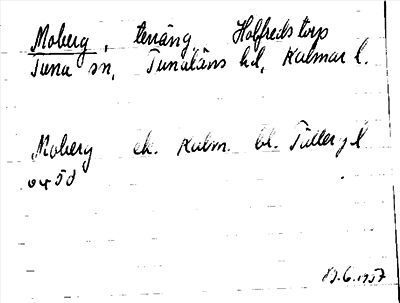 Moberg, terräng Holfredstorp
Tuna sn, Tunaläns hd, Kalmar l.
Moberg ek. Kalm. bl.
ov 50
6.1957